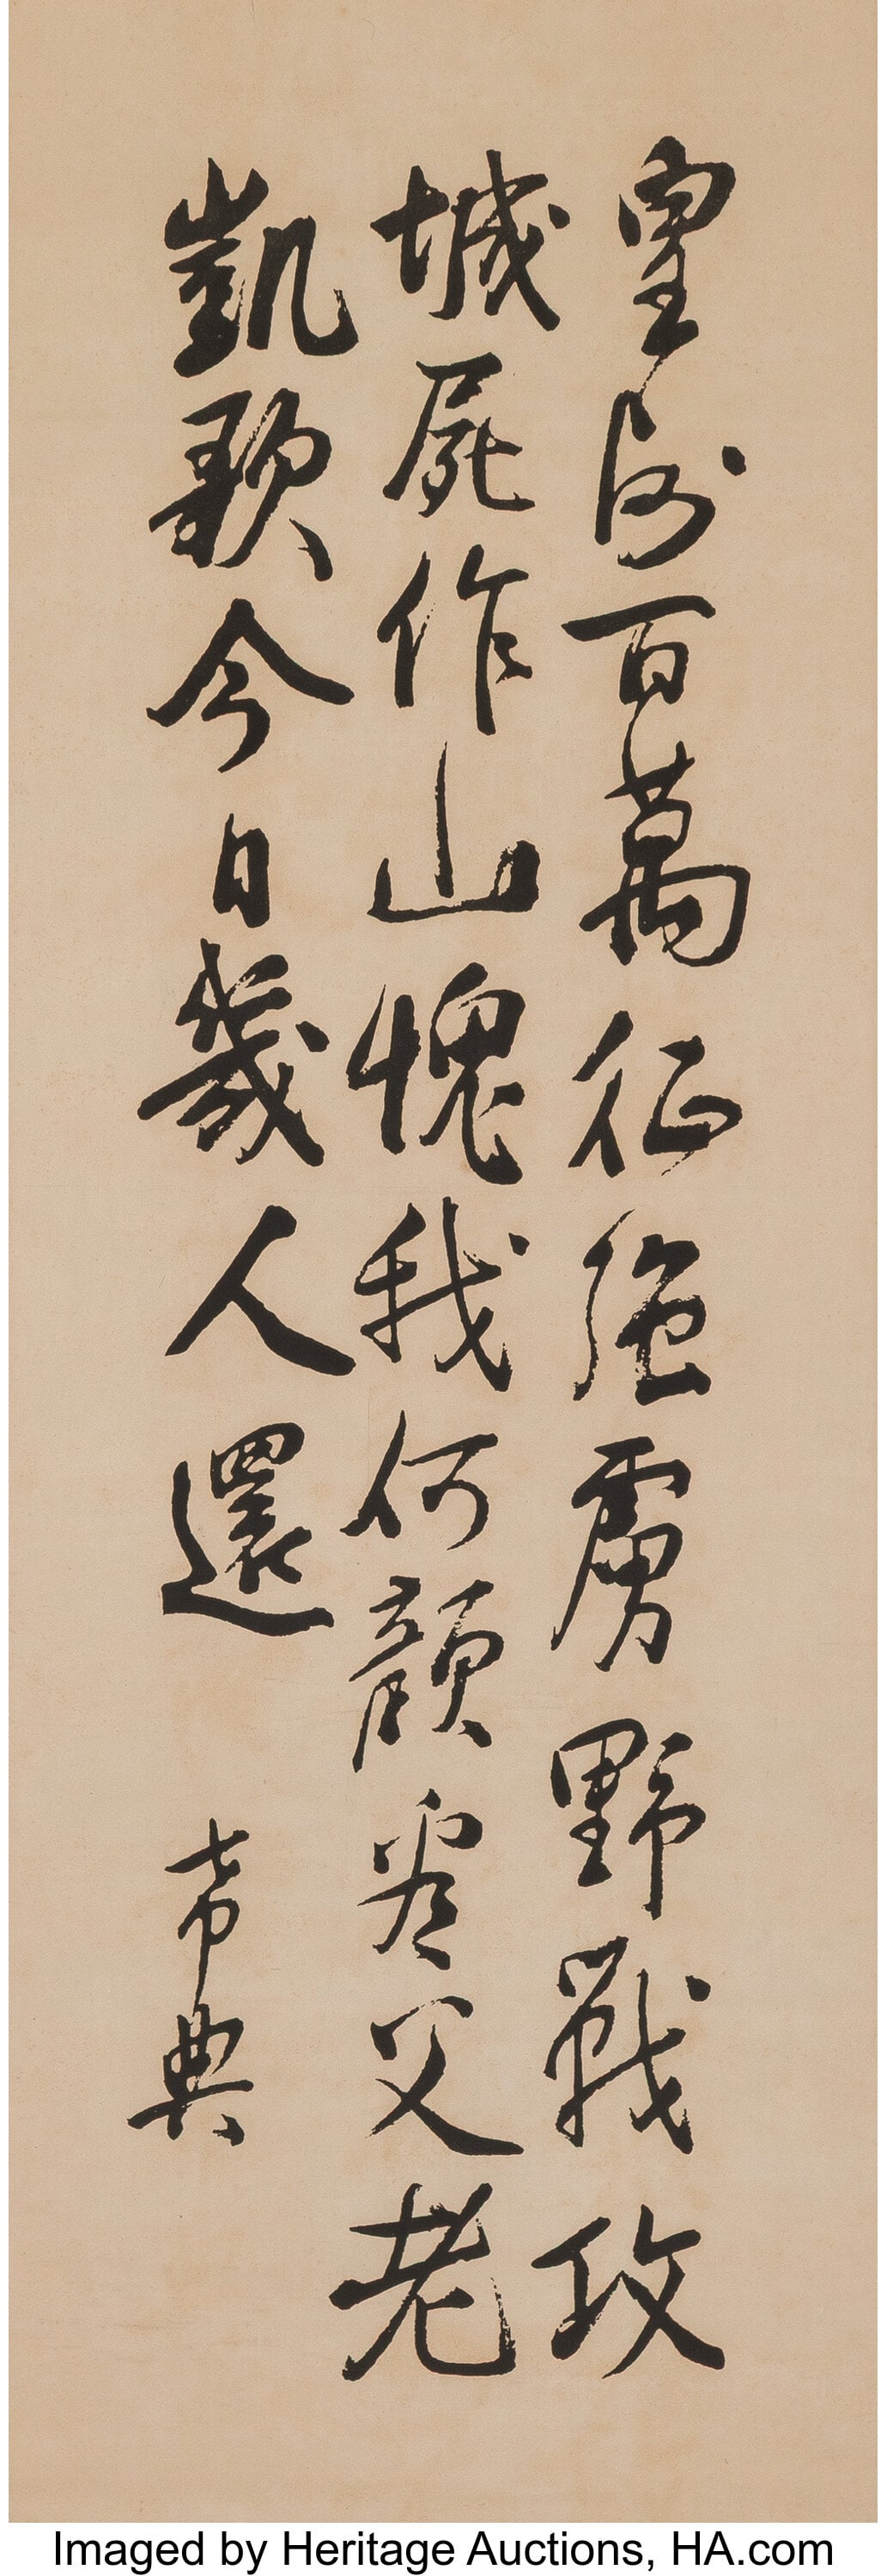 皇師百萬征強虜野戰攻
城屍作山愧我何顔看父老
凱歌今日幾人還 希典
Imaged by Heritage Auctions, HA.com